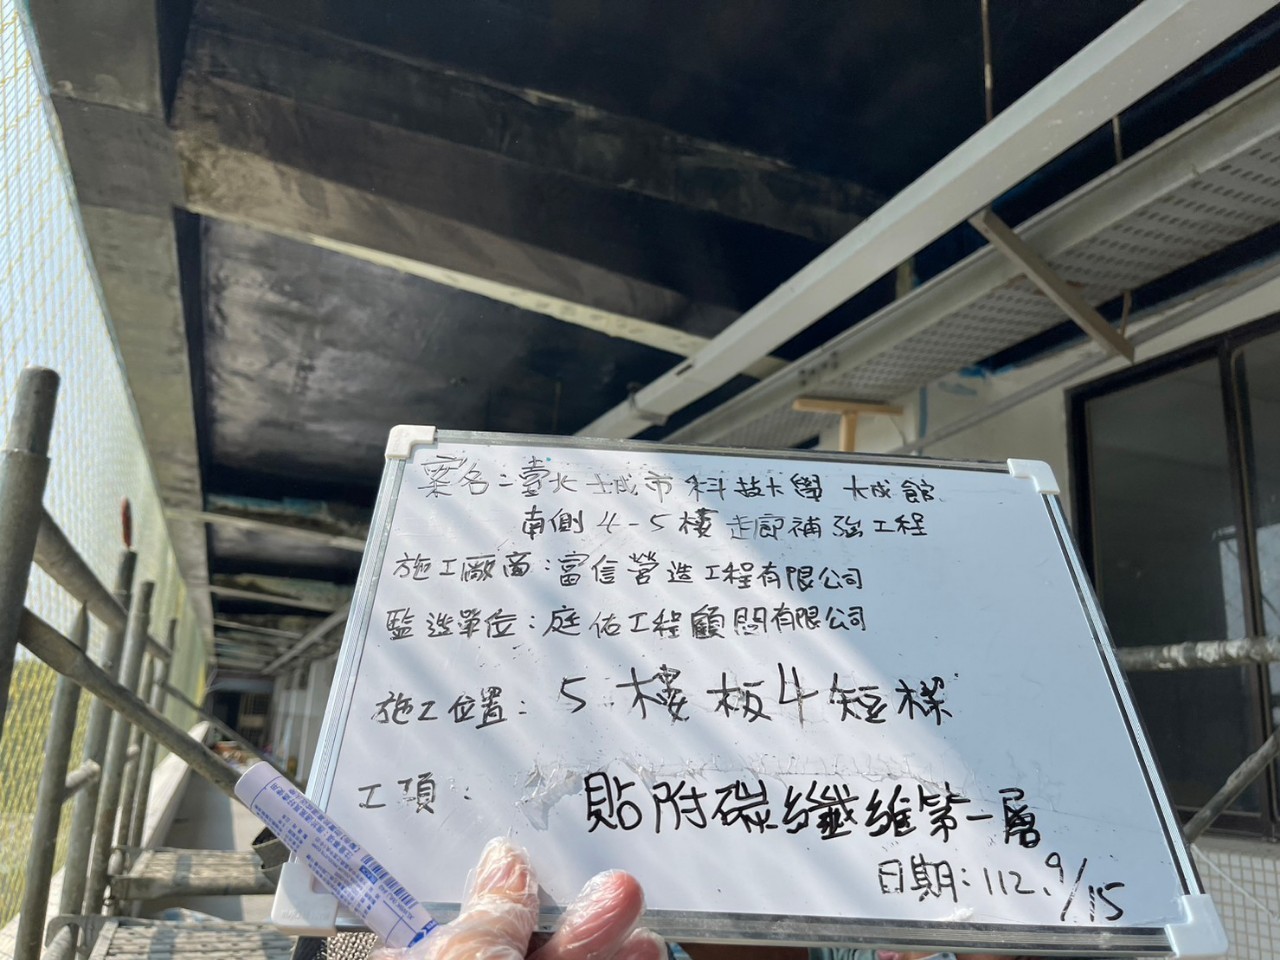 案名：臺北城市科技大學 大成館
南側4-5樓走廊補強工程
施工廠商：富信營造工程有限公司
監造單位：庭佑工程顧問有限公司
施工位置：5樓板4短樑
工項：貼附碳纖維第一層
日期：112.9/15